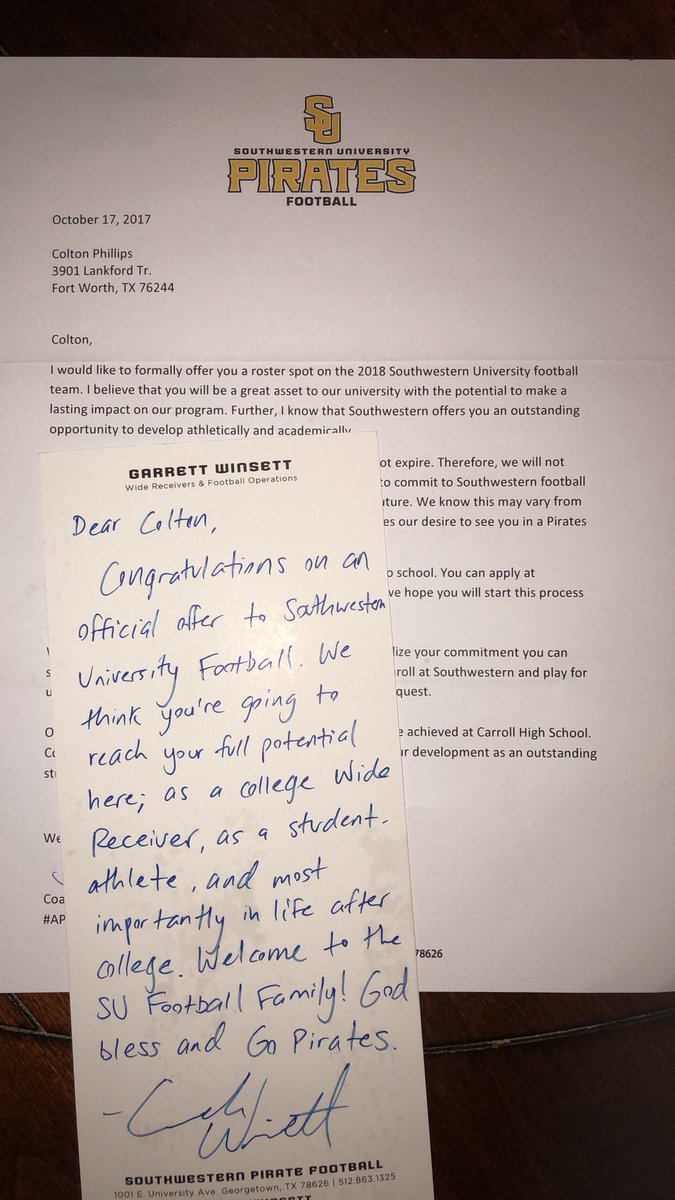 SU
SOUTHWESTERN UNIVERSITY
PIRATES
FOOTBALL
October 17, 2017
Colton Phillips
3901 Lankford Tr.
Fort Worth, TX 76244
Colton,
I would like to formally offer you a roster spot on the 2018 Southwestern University football
team. I believe that you will be a great asset to our university with the potential to make a
lasting impact on our program. Further, I know that Southwestern offers you an outstanding
opportunity to develop athletically and academically
ot expire. Therefore, we will not
to commit to Southwestern football
uture. We know this may vary from
es our desire to see you in a Pirates
o school. You can apply at
ve hope you will start this process
lize your commitment you can
roll at Southwestern and play for
quest.
e achieved at Carroll High School.
ur development as an outstanding
st
We
Coa
#AP
78626
GARRETT WINSETT
Wide Receivers & Football Operations
Dear Colton,
Congratulations on an
official offer to Southwestern
University Football. We
think you're going to
reach your full potential
here; as a college Wide
Receiver, as a student-
athlete, and most
importantly in life after
college. Welcome to the
SU Football Family! God
bless and Go Pirates.
SOUTHWESTERN PIRATE FOOTBALL
1001 E. University Ave. Georgetown, TX 78626 | 512.863.1325